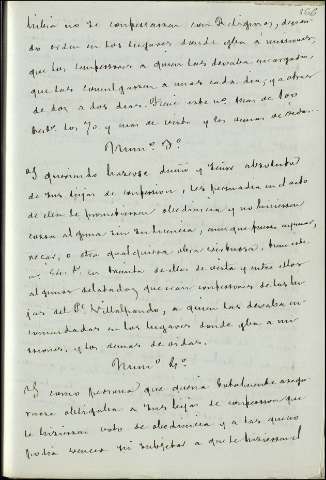 166
lidia no se confessassen con Religiosos, dexan-
do orden en los lugares donde yba á misiones,
que los confessores a quien las dexaba encargadas,
que las comulgassen a unas cada dia, y a otras
de dos a dos dias. Tiene este nº mas de 100
test.º los 70 y mas de vista y los demas de oidas.
Num.º 3.º
Y queriendo hacerse dueño y Señor absoluto
de sus hijas de confesion, les persuadia en el acto
de ella le prometiessen obediencia y no hiciessen
cossa alguna sin su licencia, aunque fuesse ayunar,
rezar, o otra qualquiera obra virtuossa. Tiene este
nº
treinta de ellos de vista y entre ellos
algunos delatados, que eran confessores de las hi-
jas del P.e Villalpando, a quien las dexaba en-
comendadas en los lugares donde yba a mi-
siones, y los demas de oidas.
Num.º 4.º
Y como persona que queria totalmente asegu-
rarse obligaba a sus hijas de confession que
le hiciessen voto de obediencia y a las que no
podia vencer ni sujetar a que le hiciessen el